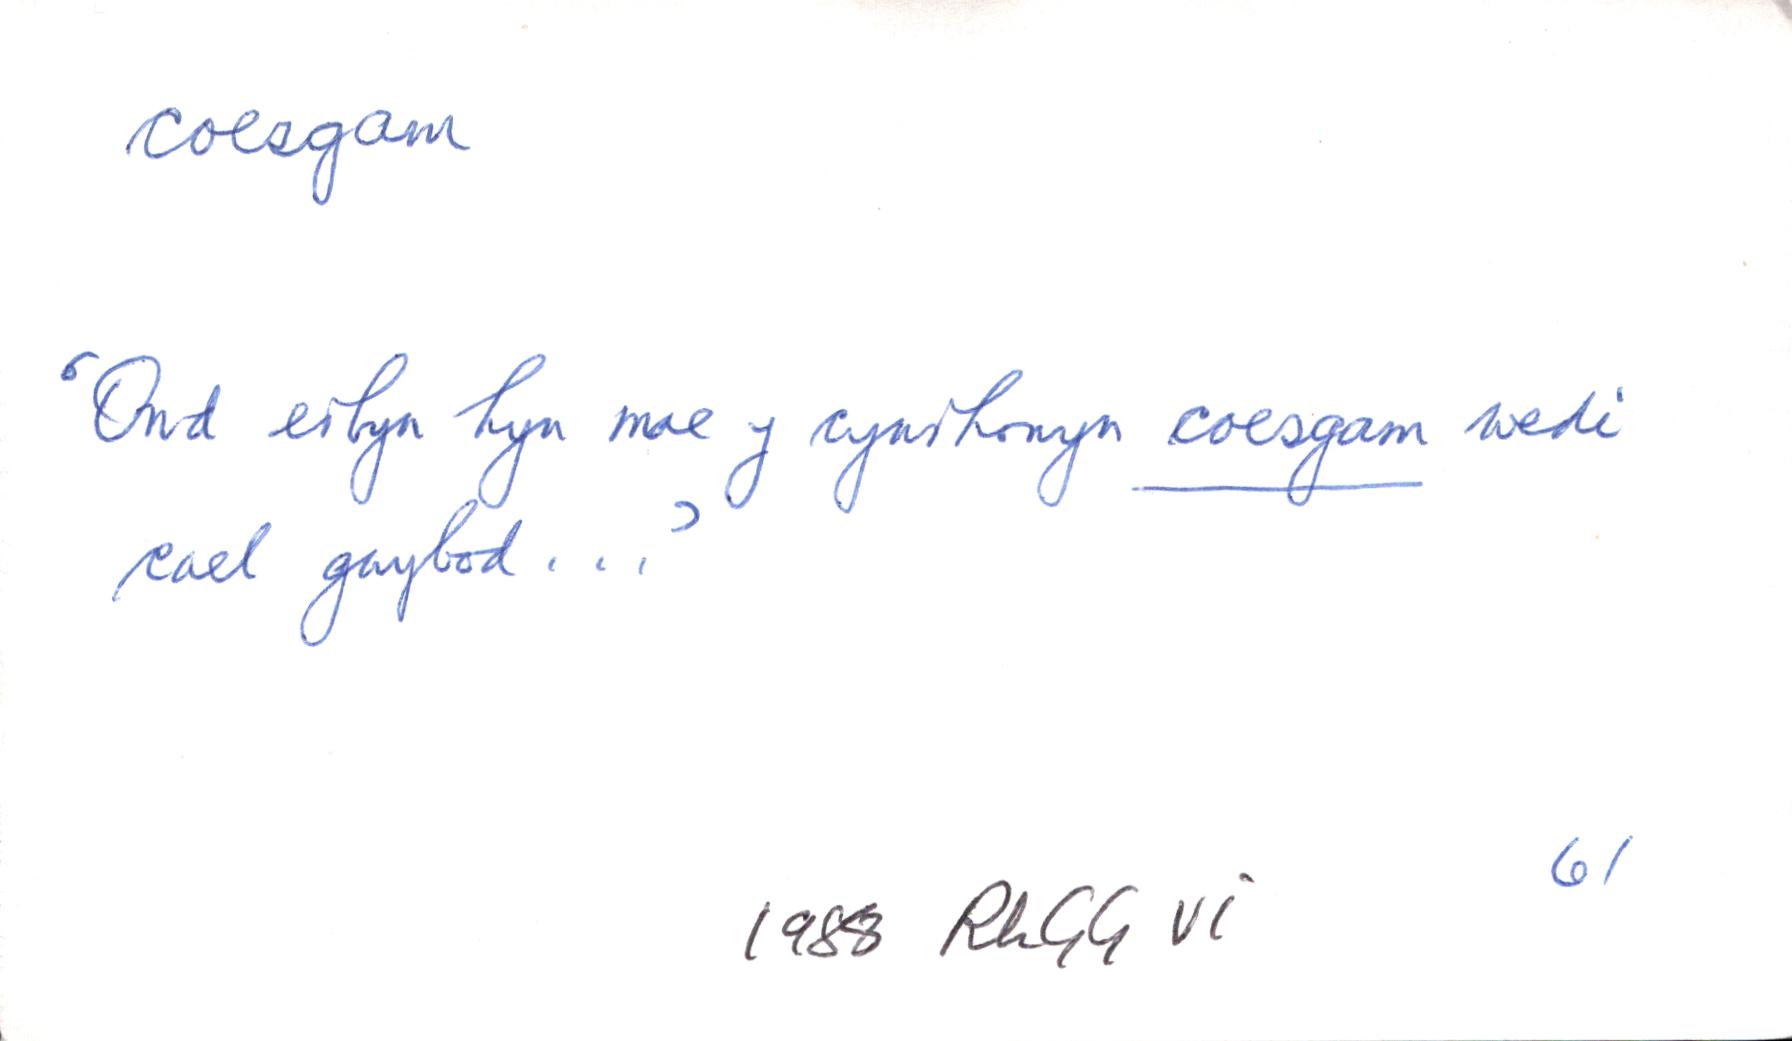 coesgam
'Ond erbyn hyn mae y cynrhonyn coesgam wedi
cael gwybod...'
61
1988 RhGG vi